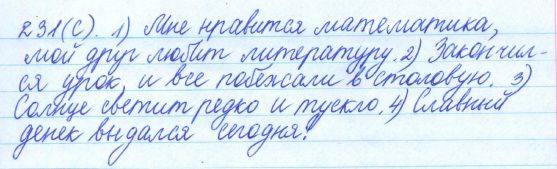 231(с). 1) Мне нравится математика,
мой друг любит литературу. 2) Закончил-
ся урок, и все побежали в столовую. 3)
Солнце светит редко и тускло. 4) Славный
денек выдался сегодня!